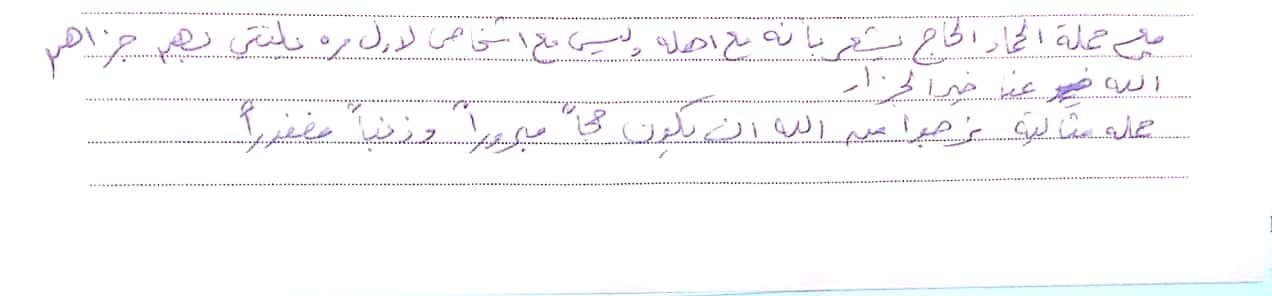 مع حملة الحماد الحاج يشعر بأنه مع اهله وليس مع اشخاص لاول مره يلتقي بهم جزاهم
الله عنا خير الجزاء
حمله مثالية نرجوا من الله ان يكون حجاً مبروراً وذنباً مغفوراً